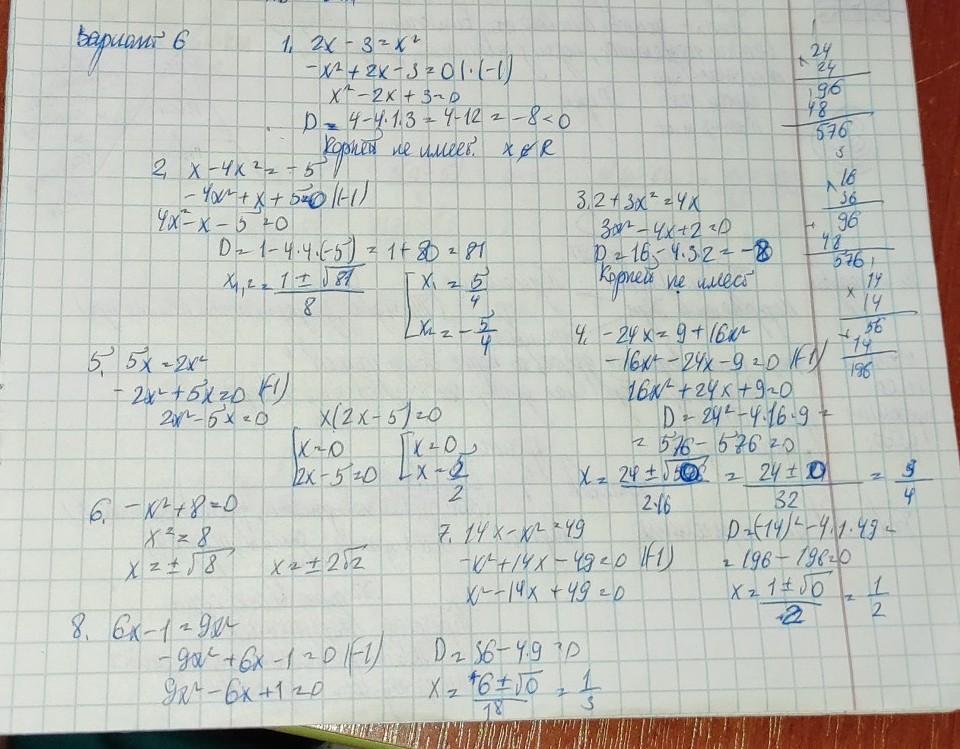 Вариант 6
1. 2x - 3 = x²
-x² + 2x - 3 = 0 | · (-1)
x² - 2x + 3 = 0
D = 4 - 4·1·3 = 4 - 12 = -8 < 0
Корней не имеет. x ∉ R
2. x - 4x² = -5
-4x² + x + 5 = 0 |(-1)
4x² - x - 5 = 0
D = 1 - 4·4·(-5) = 1 + 80 = 81
x₁,₂ = (1 ± √81)/8
[x₁ = 5/4
x₂ = -5/4
3. 2 + 3x² = 4x
3x² - 4x + 2 = 0
D = 16 - 4·3·2 = -8
Корней не имеет
4. -24x = 9 + 16x²
-16x² - 24x - 9 = 0 |(-1)
16x² + 24x + 9 = 0
D = 24² - 4·16·9 =
= 576 - 576 = 0
= (24 ± 0)/32 = 3/4
5. 5x = 2x²
-2x² + 5x = 0 |(-1)
2x² - 5x = 0
x(2x - 5) = 0
[x = 0
2x - 5 = 0
[x = 0
x = 5/2
6. -x² + 8 = 0
x² = 8
x = ± √8 x = ± 2√2
7. 14x - x² = 49
-x² + 14x - 49 = 0 |(-1)
x² - 14x + 49 = 0
D = (-14)² - 4·1·49 =
= 196 - 196 = 0
x = (1 ± √0)/2 = 1/2
8. 6x - 1 = 9x²
-9x² + 6x - 1 = 0 |(-1)
9x² - 6x + 1 = 0
D = 36 - 4·9 = 0
x = (+6 ± √0)/18 = 1/3
× 24
24
96
48
576
× 16
36
+ 96
48
576
× 14
14
+ 56
14
196